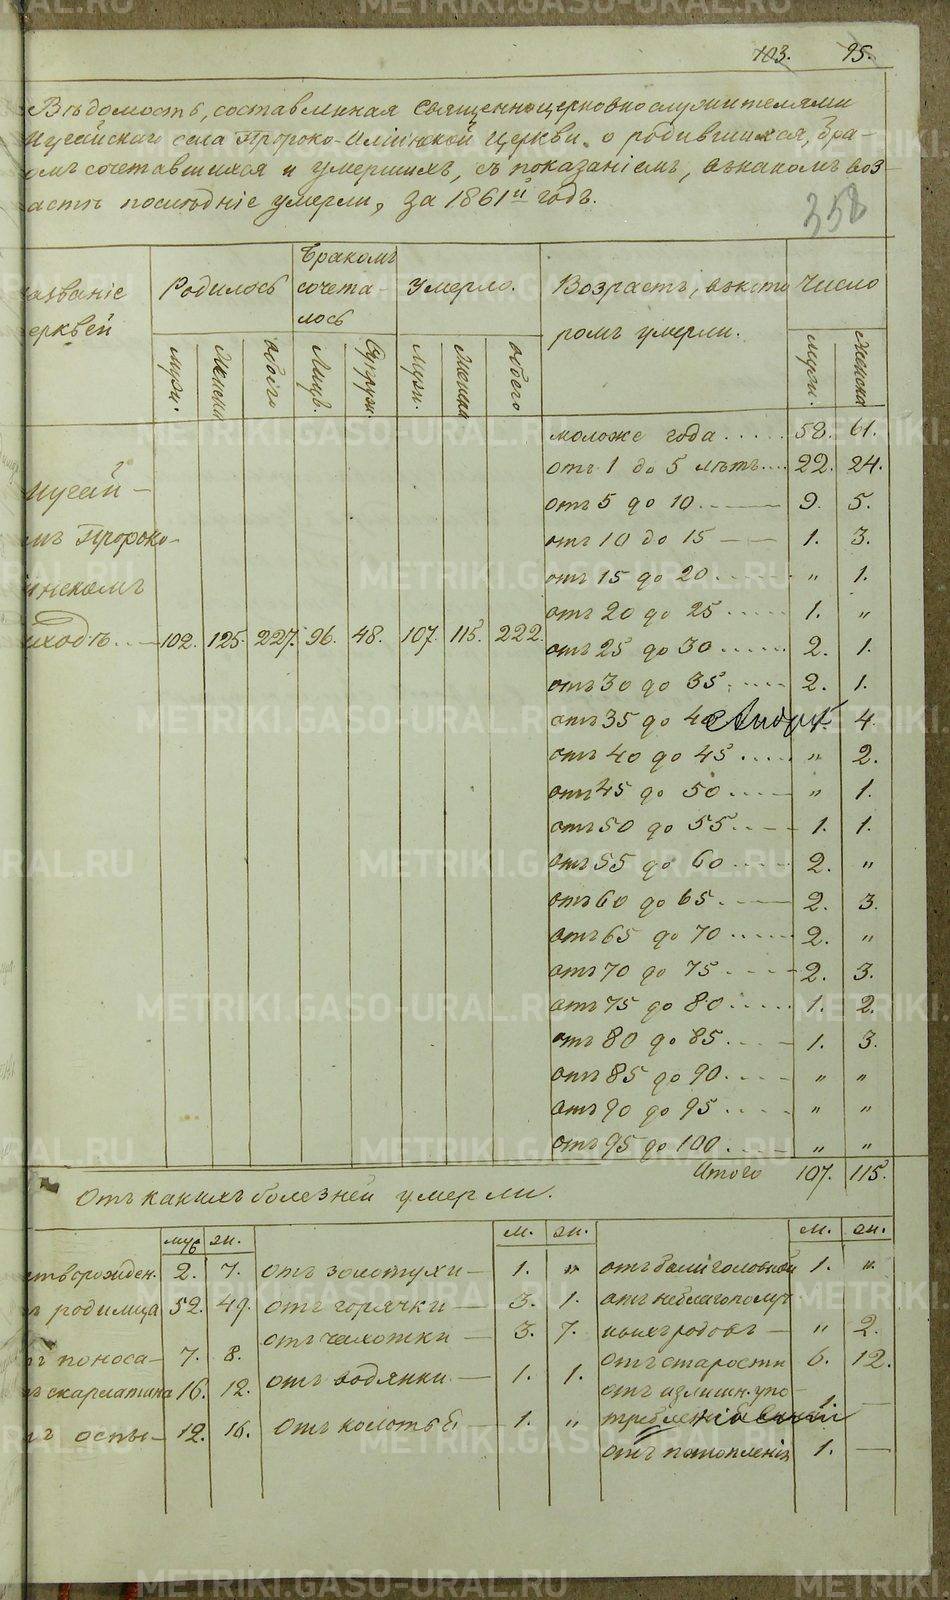 103. 95.
Вѣдомость, составленная священноцерковнослужителями
села Пророко-Илiинской Церкви, о родившихся, бра-
омъ сочетавшихся и умершихъ, съ показанiемъ, въ какомъ воз-
астѣ послѣднiе умерли, за 1861й годъ.
358
азванiе
ерквей
Родилось
Бракомъ
сочета-
лось
Умерло.
Возрастъ, въ кото
ромъ умерли.
Число
муж. женска обоего Лицъ. Супруж. муж. женска обоего муж. женска
моложе года ..... 58. 61.
отъ 1 до 5 лѣтъ.... 22. 24.
отъ 5 до 10. 9. 5.
отъ 10 до 15 1. 3.
отъ 15 до 20. „ 1.
отъ 20 до 25 1. „
мъ Пророко-
инскомъ
иходѣ 102. 125. 227. 96. 48. 107. 115. 222.
отъ 25 до 30 2. 1.
отъ 30 до 35. 2. 1.
отъ 35 до 40 4.
отъ 40 до 45 „ 2.
отъ 45 до 50 „ 1.
отъ 50 до 55. 1. 1.
отъ 55 до 60 2. „
отъ 60 до 65. 2. 3.
отъ 65 до 70 2. „
отъ 70 до 75 2. 3.
отъ 75 до 80 1. 2.
отъ 80 до 85. 1. 3.
отъ 85 до 90. „ „
отъ 90 до 95 „ „
отъ 95 до 100 „ „
Итого 107. 115.
Отъ какихъ болезней умерли.
муж. ж. м. ж. м. ж.
етворожден. 2. 7.
родимца 52. 49.
поноса 7. 8.
скарлатина 16. 12.
оспы 12. 16.
отъ золотухи 1. „
отъ горячки 3. 1.
отъ чахотки 3. 7.
отъ водянки 1. 1.
отъ колотья 1. „
отъ боли головной 1. „
отъ неблагополуч
ныхъ родовъ „ 2.
отъ старости 6. 12.
отъ излишн. упо-
требленiя 1.
отъ потопленiя 1.
METRIKI.GASO-URAL.RU